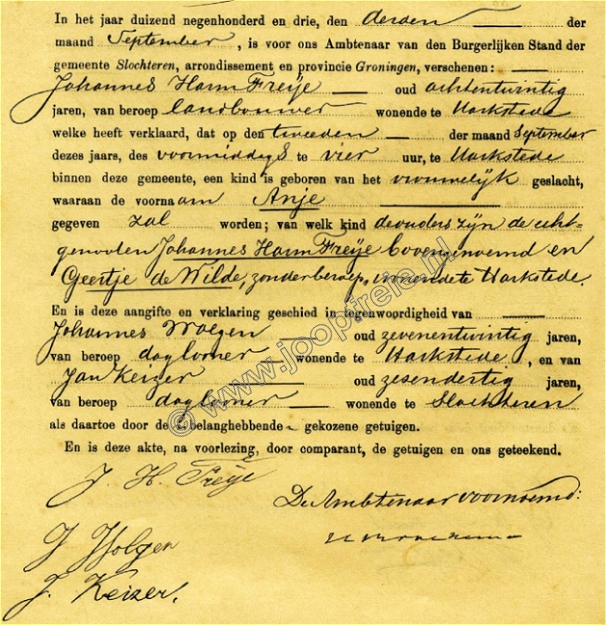 In het jaar duizend negenhonderd en drie, den derden der
maand September, is voor ons Ambtenaar van den Burgerlijken Stand der
gemeente Slochteren, arrondissement en provincie Groningen, verschenen:
Johannes Harm Freije oud achtentwintig
jaren, van beroep landbouwer wonende te Harkstede
welke heeft verklaard, dat op den tweeden der maand September
dezes jaars, des voormiddags te vier uur, te Harkstede
binnen deze gemeente, een kind is geboren van het vrouwelijk geslacht,
waaraan de voornaam Anje
gegeven zal worden; van welk kind de ouders zijn de echt-
genooten Johannes Harm Freije bovengenoemd en
Geertje de Wilde, zonder beroep, wonende te Harkstede.
En is deze aangifte en verklaring geschied in tegenwoordigheid van
Johannes Wolgen oud zevenentwintig jaren,
van beroep daglooner wonende te Harkstede, en van
Jan Keizer oud zesendertig jaren,
van beroep daglooner wonende te Slochteren
als daartoe door de belanghebbende gekozene getuigen.
En is deze akte, na voorlezing, door comparant, de getuigen en ons geteekend.
J. H. Freije
De Ambtenaar voornoemd:
J Wolgen
J. Keizer.
© www.joopfreie.nl